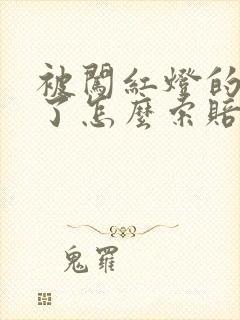 被闖紅燈的
了怎麼索賠
鬼羅